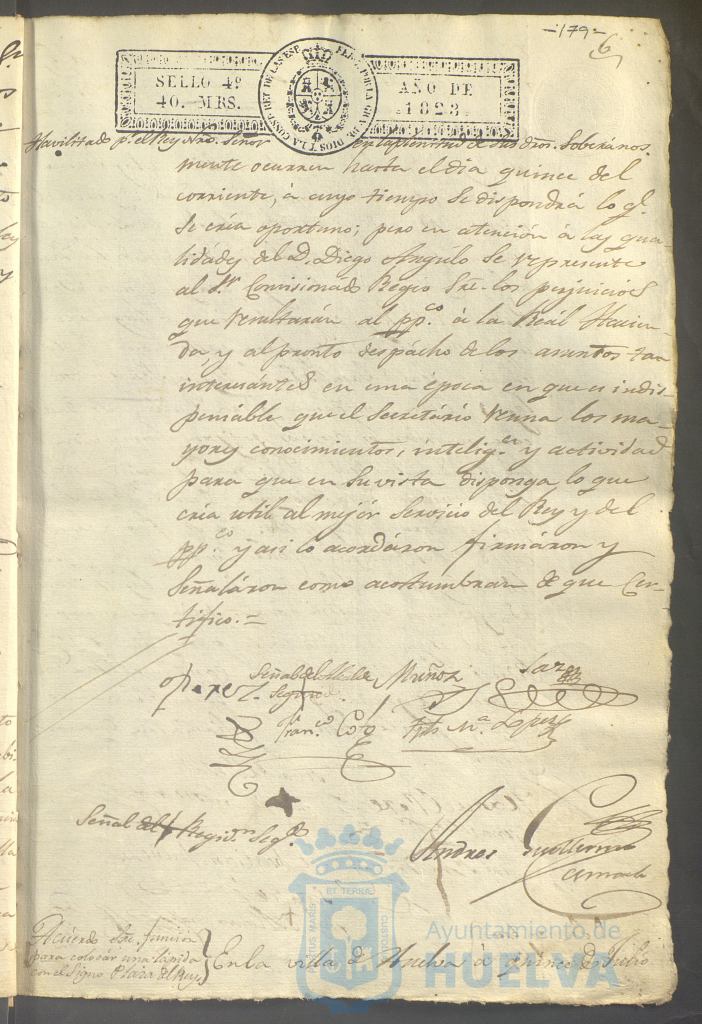 -179-
6
SELLO 4º
40. MRS.
AÑO DE
1823.
Havilitado pr. el Rey Ntro. Señor en la plenitud de sus dros. Soberános.
mente ocurren hasta el dia quince del
corriente, à cuyo tiempo se dispondrá lo ql.
se créa oportuno; pero en atención à las qua-
lidades del D. Diego Angúlo se represente
al Sr. Comisionado Regio Sre. los perjuicios
que resultarán al ppco. à la Reál Hacien-
da, y al pronto despácho de los asuntos tan
interesantes en una época en que es indis-
pensable que el Secretário reuna los ma-
yores conocimientos, inteligen. y actividad
para que en su vista disponga lo que
créa util al mejór servicio del Rey y del
ppco. y asi lo acordáron firmáron y
señaláron como acostumbran de que Cer-
tifico.=
Perez
Señal del Alcalde
2.º Segundo
Muñoz
Franco.
Ma. Lopez
Señal del Regidor Segdo.
Andres Guillermo
Camacho
Acuerdo Sre. funcion
para colocar una lápida
con el Signo Plaza del Rey
En la villa de Huelva à quince de Julio
ET TERRÆ
CUSTODIA
Ayuntamiento de
HUELVA